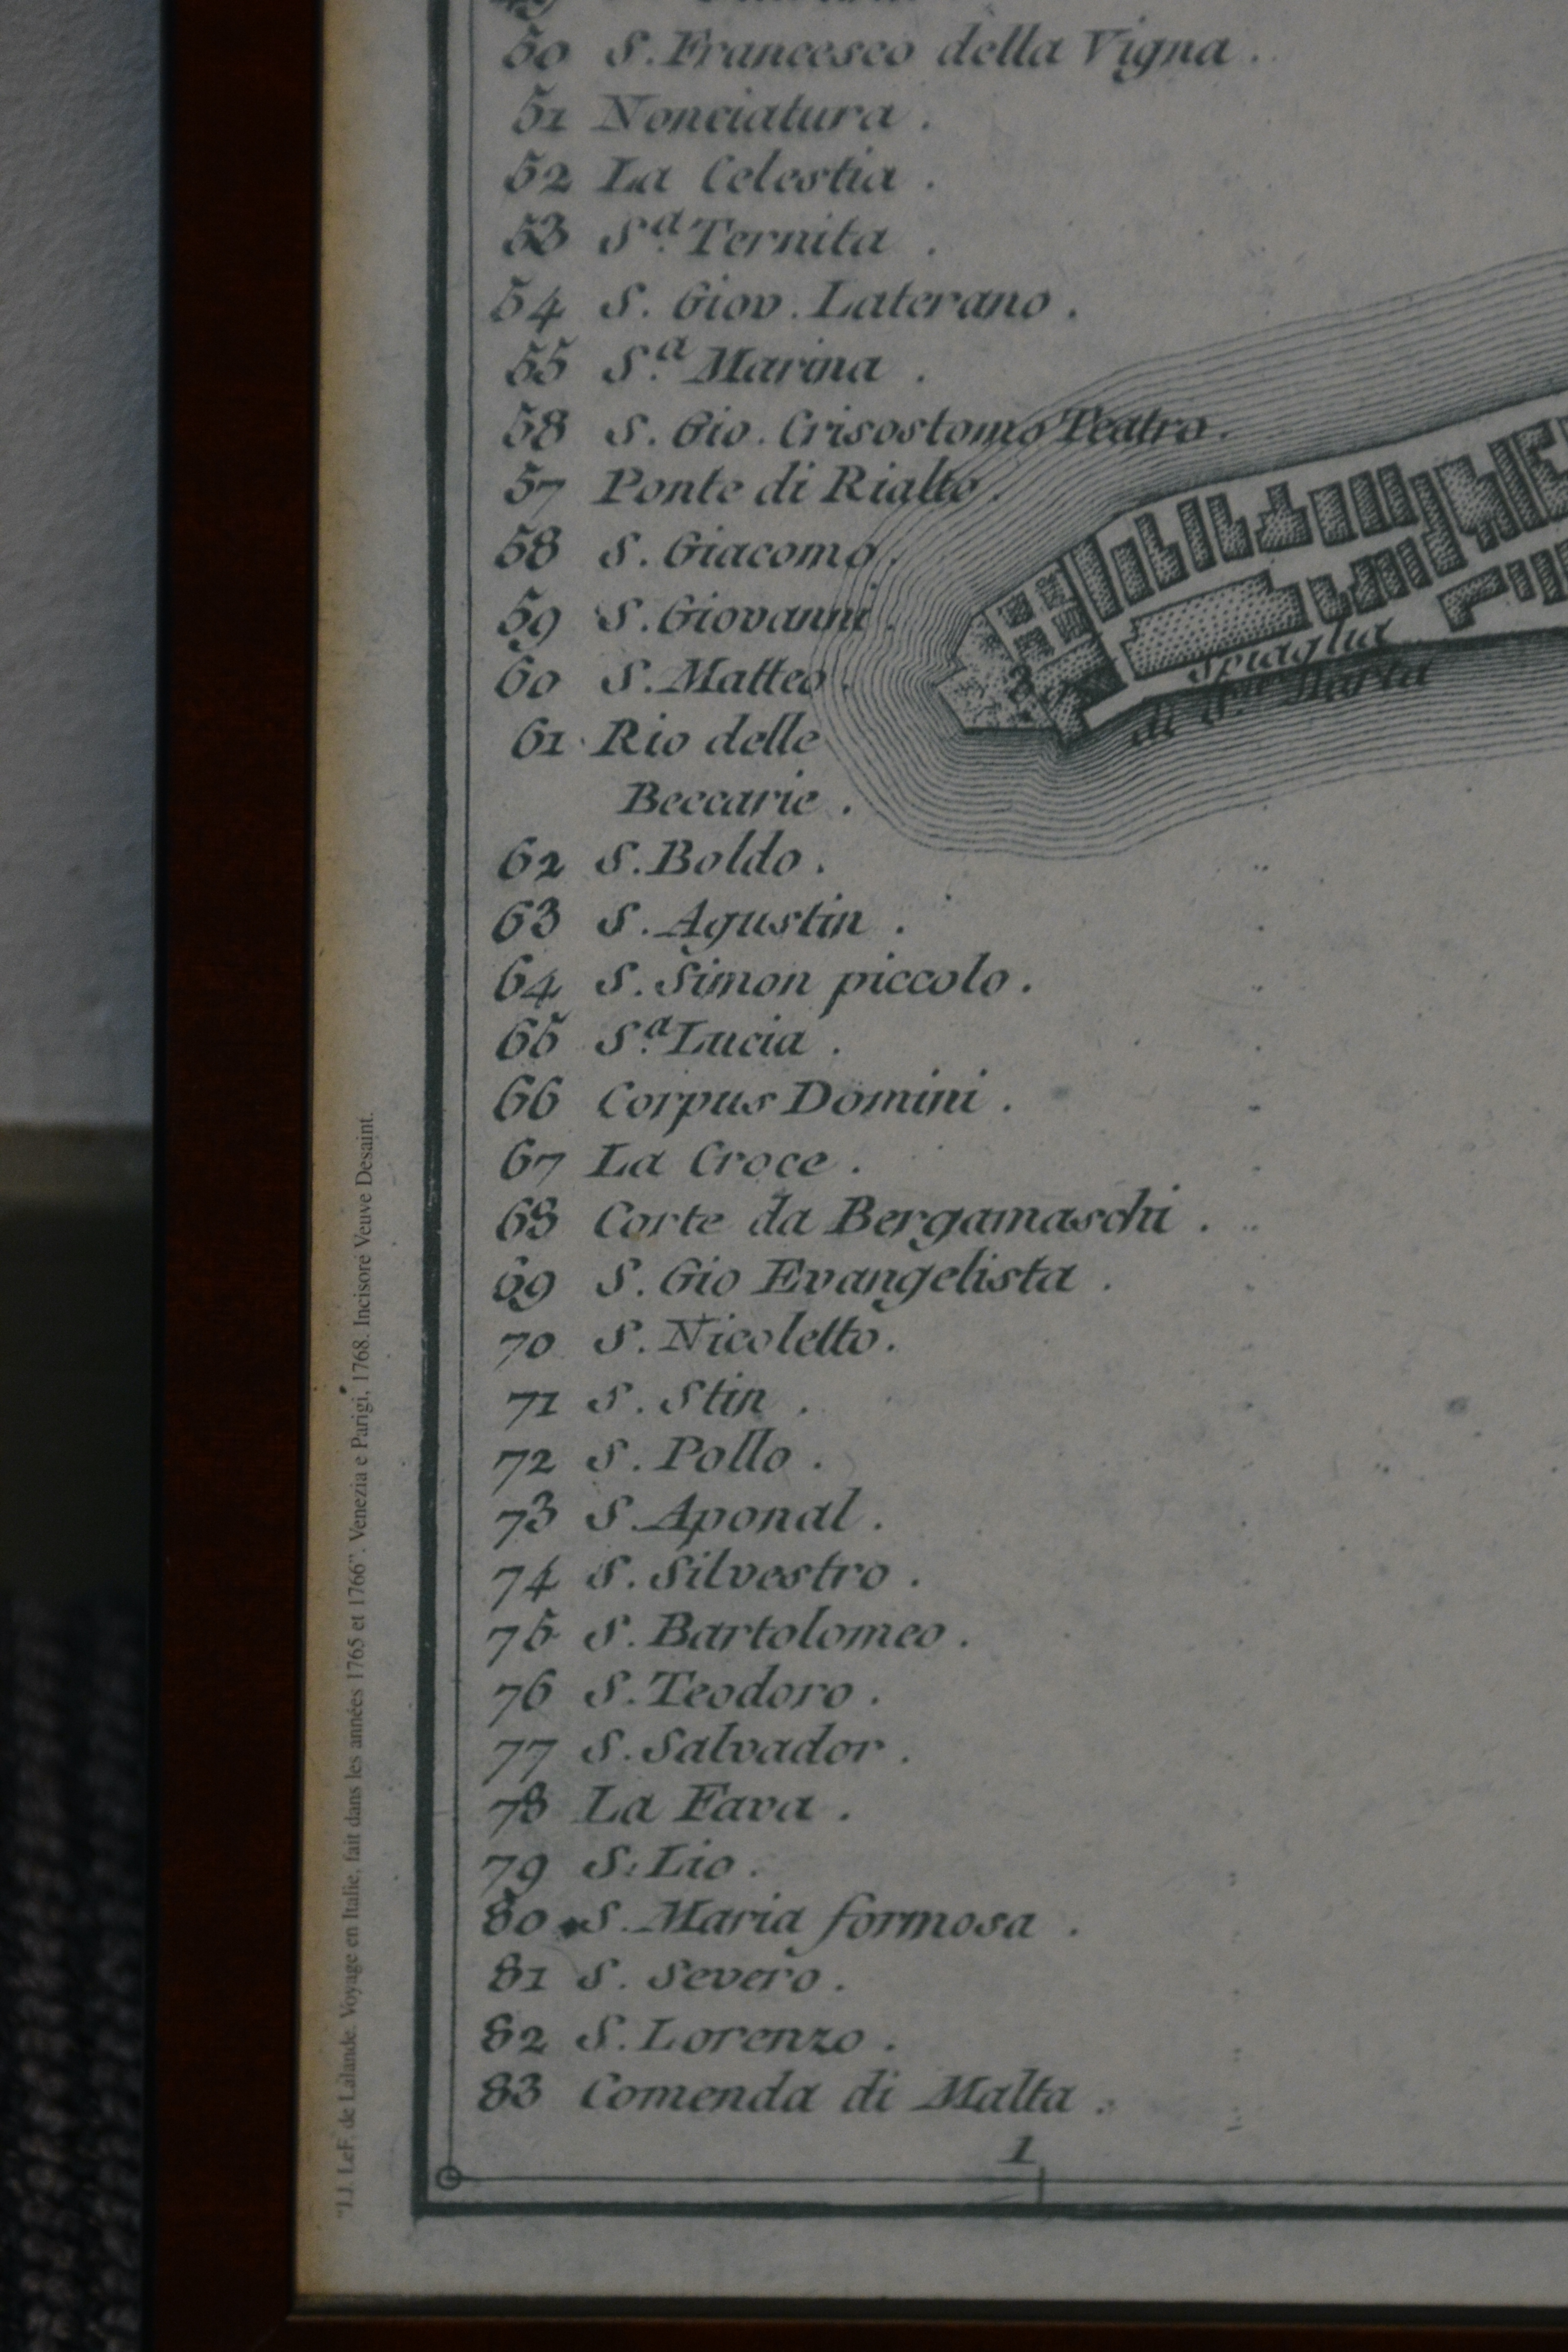 50 S. Francesco della Vigna .
51 Nonciatura .
52 La Celestia .
53 S.ª Ternita .
54 S. Giov. Laterano .
55 S.ª Marina .
58 S. Gio. Crisostomo Teatro .
57 Ponte di Rialto .
58 S. Giacomo .
59 S. Giovanni .
60 S. Matteo .
61 Rio delle
Beccarie .
62 S. Boldo .
63 S. Agustin .
64 S. Simon piccolo .
65 S.ª Lucia .
66 Corpus Domini .
67 La Croce .
68 Corte da Bergamaschi .
69 S. Gio Evangelista .
70 S. Nicoletto .
71 S. Stin .
72 S. Pollo .
73 S. Aponal .
74 S. Silvestro .
75 S. Bartolomeo .
76 S. Teodoro .
77 S. Salvador .
78 La Fava .
79 S. Lio .
80 S. Maria formosa .
81 S. Severo .
82 S. Lorenzo .
83 Comenda di Malta .
1
Spiaglia
di S.ta Marta
"J.J. LeF. de Lalande. Voyage en Italie, fait dans les années 1765 et 1766". Venezia e Parigi, 1768. Incisore Veuve Desaint.